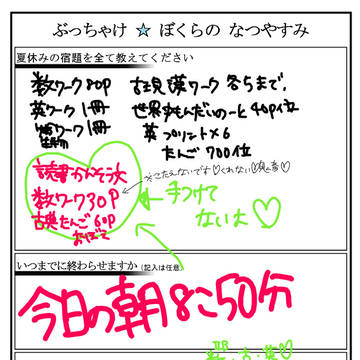 ぶっちゃけ ☆ ぼくらの なつやすみ
夏休みの宿題を全て教えてください
数ワーク 80P 古現漢ワーク 各5まで、
英ワーク 1冊 世界史もんだいのーと 40P位
生物ワーク 1冊 英プリント×6
たんご 700位
読書かんそう文
数ワーク30P
古典たんご 60P
おぼえて
←手つけてないよ♡
いつまでに終わらせますか (記入は任意)
今日の朝8こ50分